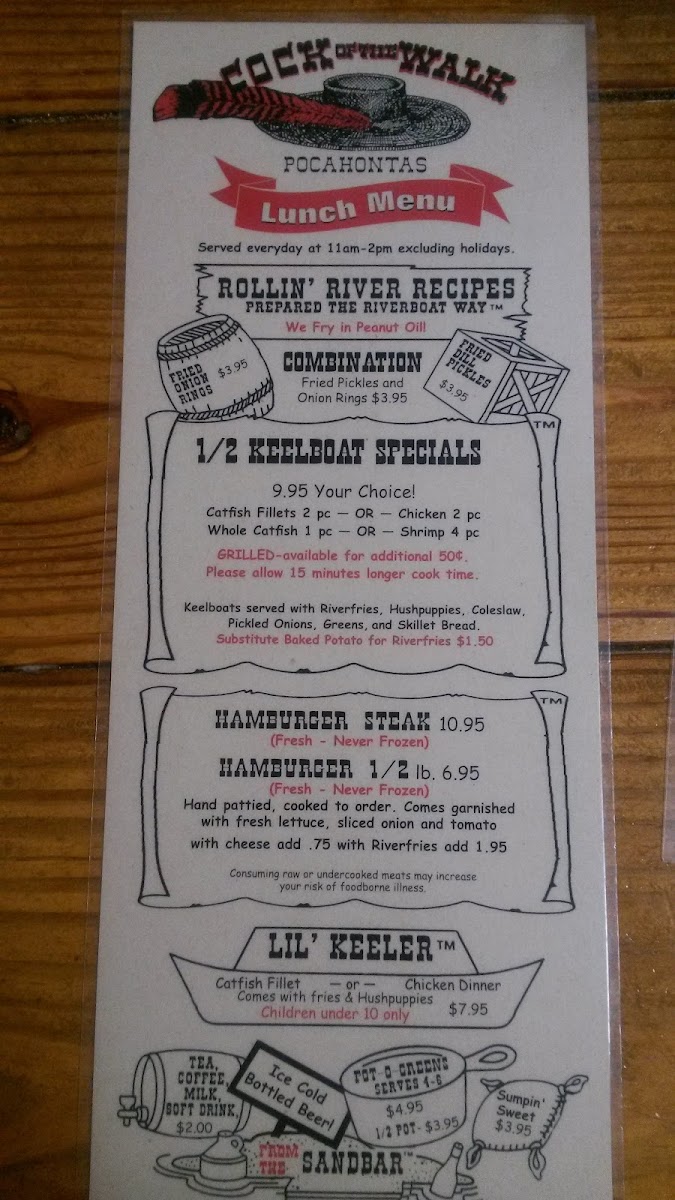 COCK OF THE WALK
POCAHONTAS
Lunch Menu
Served everyday at 11am-2pm excluding holidays.
ROLLIN' RIVER RECIPES
PREPARED THE RIVERBOAT WAY™
We Fry in Peanut Oil!
FRIED
ONION
RINGS
$3.95
COMBINATION
Fried Pickles and
Onion Rings $3.95
FRIED
DILL
PICKLES
$3.95
TM
1/2 KEELBOAT SPECIALS
9.95 Your Choice!
Catfish Fillets 2 pc — OR — Chicken 2 pc
Whole Catfish 1 pc — OR — Shrimp 4 pc
GRILLED-available for additional 50¢.
Please allow 15 minutes longer cook time.
Keelboats served with Riverfries, Hushpuppies, Coleslaw,
Pickled Onions, Greens, and Skillet Bread.
Substitute Baked Potato for Riverfries $1.50
TM
HAMBURGER STEAK 10.95
(Fresh - Never Frozen)
HAMBURGER 1/2 lb. 6.95
(Fresh - Never Frozen)
Hand pattied, cooked to order. Comes garnished
with fresh lettuce, sliced onion and tomato
with cheese add .75 with Riverfries add 1.95
Consuming raw or undercooked meats may increase
your risk of foodborne illness.
LIL' KEELER™
Catfish Fillet — or — Chicken Dinner
Comes with fries & Hushpuppies
$7.95
Children under 10 only
TEA,
COFFEE,
MILK,
SOFT DRINK,
$2.00
Ice Cold
Bottled Beer!
POT-O-GREENS
SERVES 4-6
$4.95
1/2 POT- $3.95
Sumpin'
Sweet
$3.95
FROM
THE
SANDBAR™